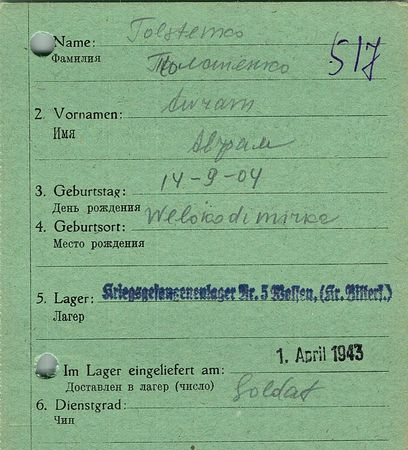 Name:
Фамилия
517
2. Vornamen:
Имя
3. Geburtstag: 14-9-04
День рождения
4. Geburtsort:
Место рождения
5. Lager: Kriegsgefangenenlager Nr. 5 Wolfen, (Kr. Bitterf.)
Лагер
Im Lager eingeliefert am: 1. April 1943
Доставлен в лагер (число)
6. Dienstgrad: Soldat
Чин